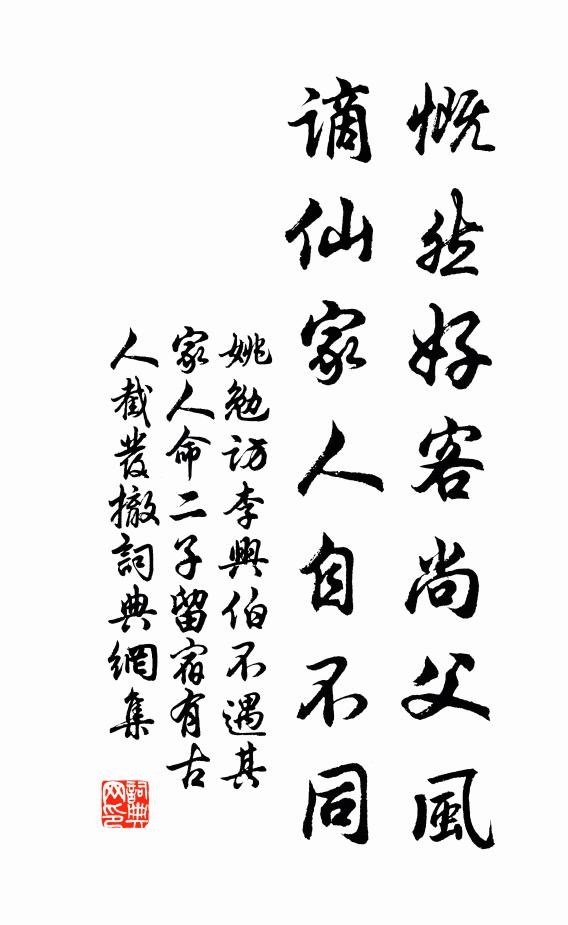 慨然好客尚父風
謫仙家人自不同
姚勉訪李興伯不遇其
家人命二子留宿有古
人截發撤詞典網集
詞典网印